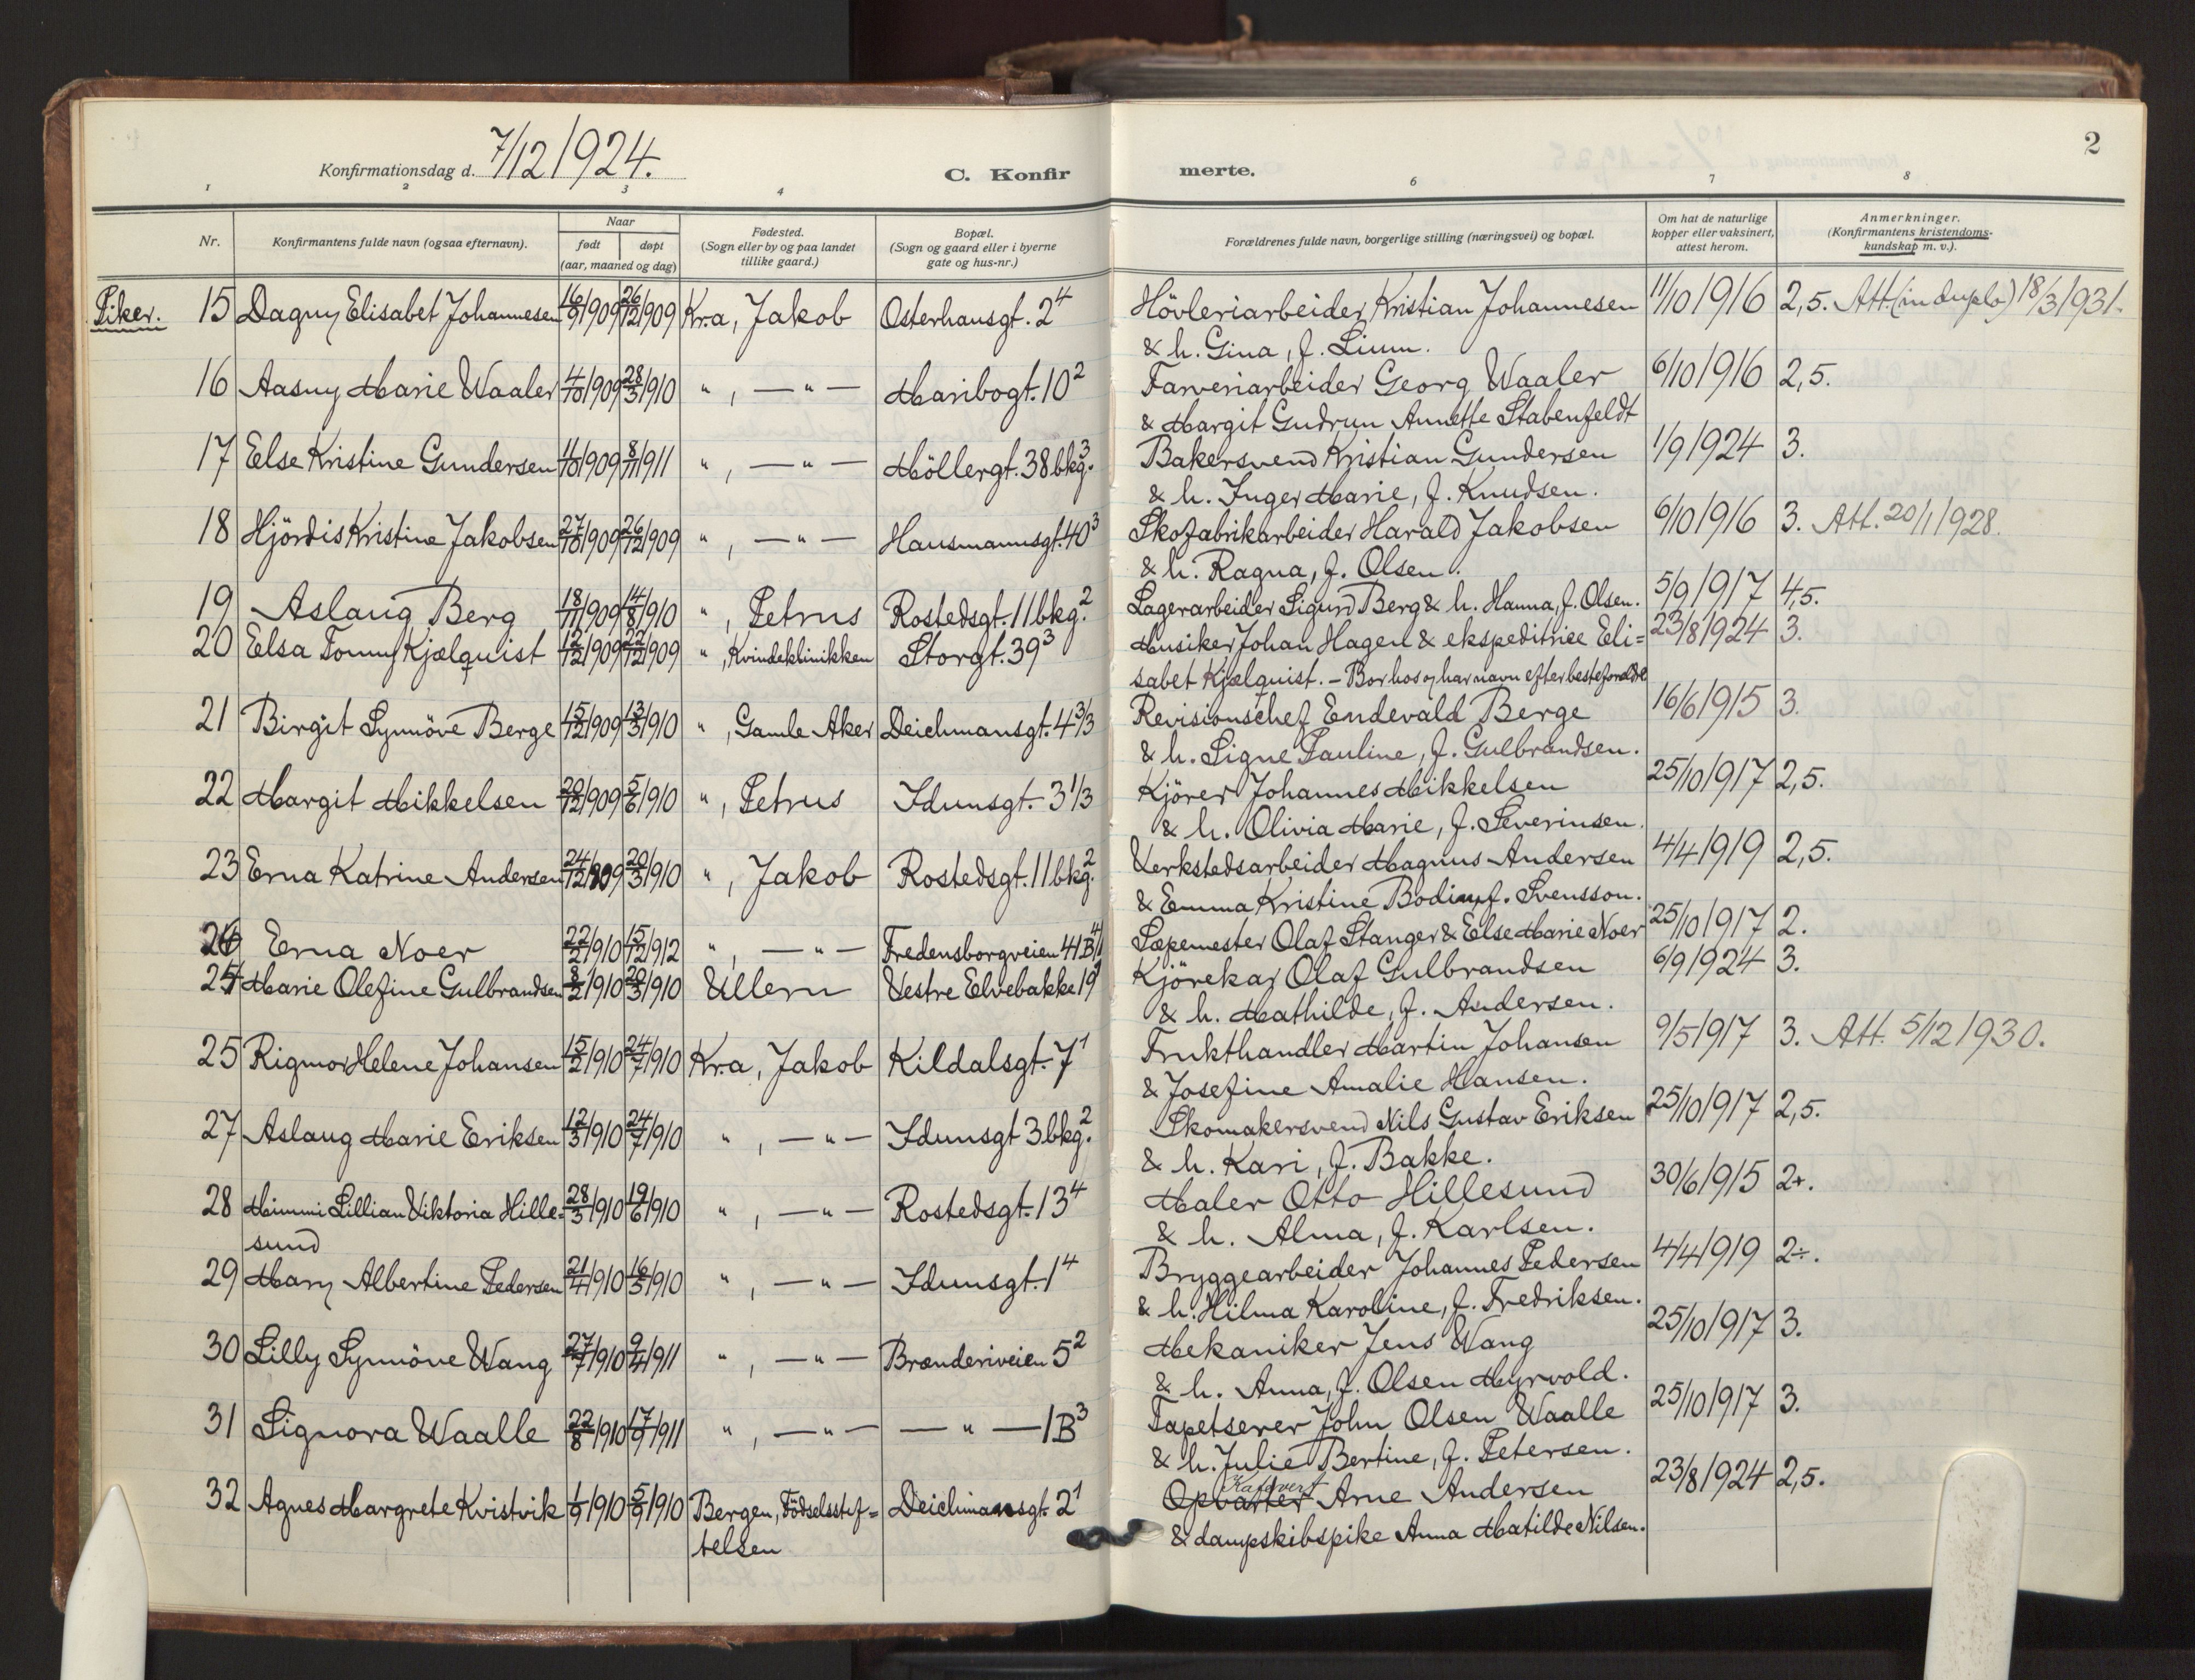 2
Konfirmationsdag d. 7/12 1924.
C. Konfirmerte.
1 2 3 4 6 7 8
Nr.
Konfirmantens fulde navn (ogsaa efternavn).
Naar
født døpt
(aar, maaned og dag)
Fødested.
(Sogn eller by og paa landet
tillike gaard.)
Bopæl.
(Sogn og gaard eller i byerne
gate og hus-nr.)
Forældrenes fulde navn, borgerlige stilling (næringsvei) og bopæl.
Om hat de naturlige
kopper eller vaksinert,
attest herom.
Anmerkninger.
(Konfirmantens kristendoms-
kundskap m. v.).
Piker. 15 Dagny Elisabet Johannesen 16/9 1909 26/12 1909 Kr.a, Jakob Osterhausgt. 2⁴ Hövleriarbeider Kristian Johannesen 11/10 1916 2,5. Att. (in duplo) 18/3 1931.
& h. Gina, f. Lium.
16 Aasny Marie Waaler 4/10 1909 28/3 1910 " , — " — Maribogt. 10² Farveriarbeider Georg Waaler 6/10 1916 2,5.
& Margit Gudrun Annette Stabenfeldt
17 Else Kristine Gundersen 11/10 1909 8/11 1911 " , — " — Möllergt. 38 bkg.³ Bakersvend Kristian Gundersen 1/9 1924 3.
& h. Inger Marie, f. Knudsen.
18 Hjördis Kristine Jakobsen 27/10 1909 26/12 1909 " , — " — Hausmannsgt. 40³ Skofabrikarbeider Harald Jakobsen 6/10 1916 3. Att. 20/1 1928.
& h. Ragna, f. Olsen.
19 Aslaug Berg 18/11 1909 14/8 1910 " , Petrus Rostedsgt. 11 bkg.² Lagerarbeider Sigurd Berg & h. Hanna, f. Olsen. 5/9 1917 4,5.
20 Elsa Tonny Kjælquist 12/12 1909 22/12 1909 " , Kvindeklinikken Storgt. 39³ Musiker Johan Hagen & ekspeditrice Eli= 23/8 1924 3.
sabet Kjælquist. – Bor hos og har navn efter besteforældre
21 Birgit Synnöve Berge 15/12 1909 13/3 1910 " , Gamle Aker Deichmansgt. 4 3/3 Revisionschef Endevald Berge 16/6 1915 3.
& h. Signe Pauline, f. Gulbrandsen.
22 Margit Mikkelsen 20/12 1909 5/6 1910 " , Petrus Idunsgt. 3 1/3 Kjörer Johannes Mikkelsen 25/10 1917 2,5.
& h. Olivia Marie, f. Severinsen.
23 Erna Katrine Andersen 24/12 1909 20/3 1910 " , Jakob Rostedsgt. 11 bkg.² Verkstedsarbeider Magnus Andersen 4/4 1919 2,5.
& Emma Kristine Bodin, f. Svensson.
26 Erna Noer 22/2 1910 15/12 1912 " , — " — Fredensborgveien 41 B Sæpemester Olaf Stanger & Else Marie Noer 25/10 1917 2.
24 Marie Olefine Gulbrandsen 8/2 1910 20/3 1910 Ullern Vestre Elvebakke 19 Kjörekar Olaf Gulbrandsen 6/9 1924 3.
& h. Mathilde, f. Andersen.
25 Rigmor Helene Johansen 15/2 1910 24/7 1910 Kr.a, Jakob Kildalsgt. 7¹ Frukthandler Martin Johansen 9/5 1917 3. Att. 5/12 1930.
& Josefine Amalie Hansen.
27 Aslaug Marie Eriksen 12/3 1910 24/7 1910 " , — " — Idunsgt 3 bkg.² Skomakersvend Nils Gustav Eriksen 25/10 1917 2,5.
& h. Kari, f. Bakke.
28 Mimmi Lillian Viktoria Hille= 28/3 1910 19/6 1910 " , — " — Rostedsgt. 13⁴ Maler Otto Hillesund 30/6 1915 2+.
sund & h. Alma, f. Karlsen.
29 Mary Albertine Pedersen 21/4 1910 16/5 1910 " , — " — Idunsgt. 1⁴ Bryggearbeider Johannes Pedersen 4/4 1919 2÷.
& h. Hilma Karoline, f. Fredriksen.
30 Lilly Synnöve Wang 27/7 1910 9/4 1911 " , — " — Brænderiveien 5² Mekaniker Jens Wang 25/10 1917 3.
& h. Anna, f. Olsen Myrvold.
31 Signora Waalle 22/8 1910 17/9 1911 " , — " — — " — 1 B³ Tapetserer John Olsen Waalle 25/10 1917 3.
& h. Julie Bertine, f. Petersen.
32 Agnes Margrete Kvistvik 1/9 1910 5/9 1910 Bergen, Födselsstif= Deichmansgt. 2¹ Opvarter Arne Andersen 23/8 1924 2,5.
telsen & dampskibspike Anna Matilde Nilsen.